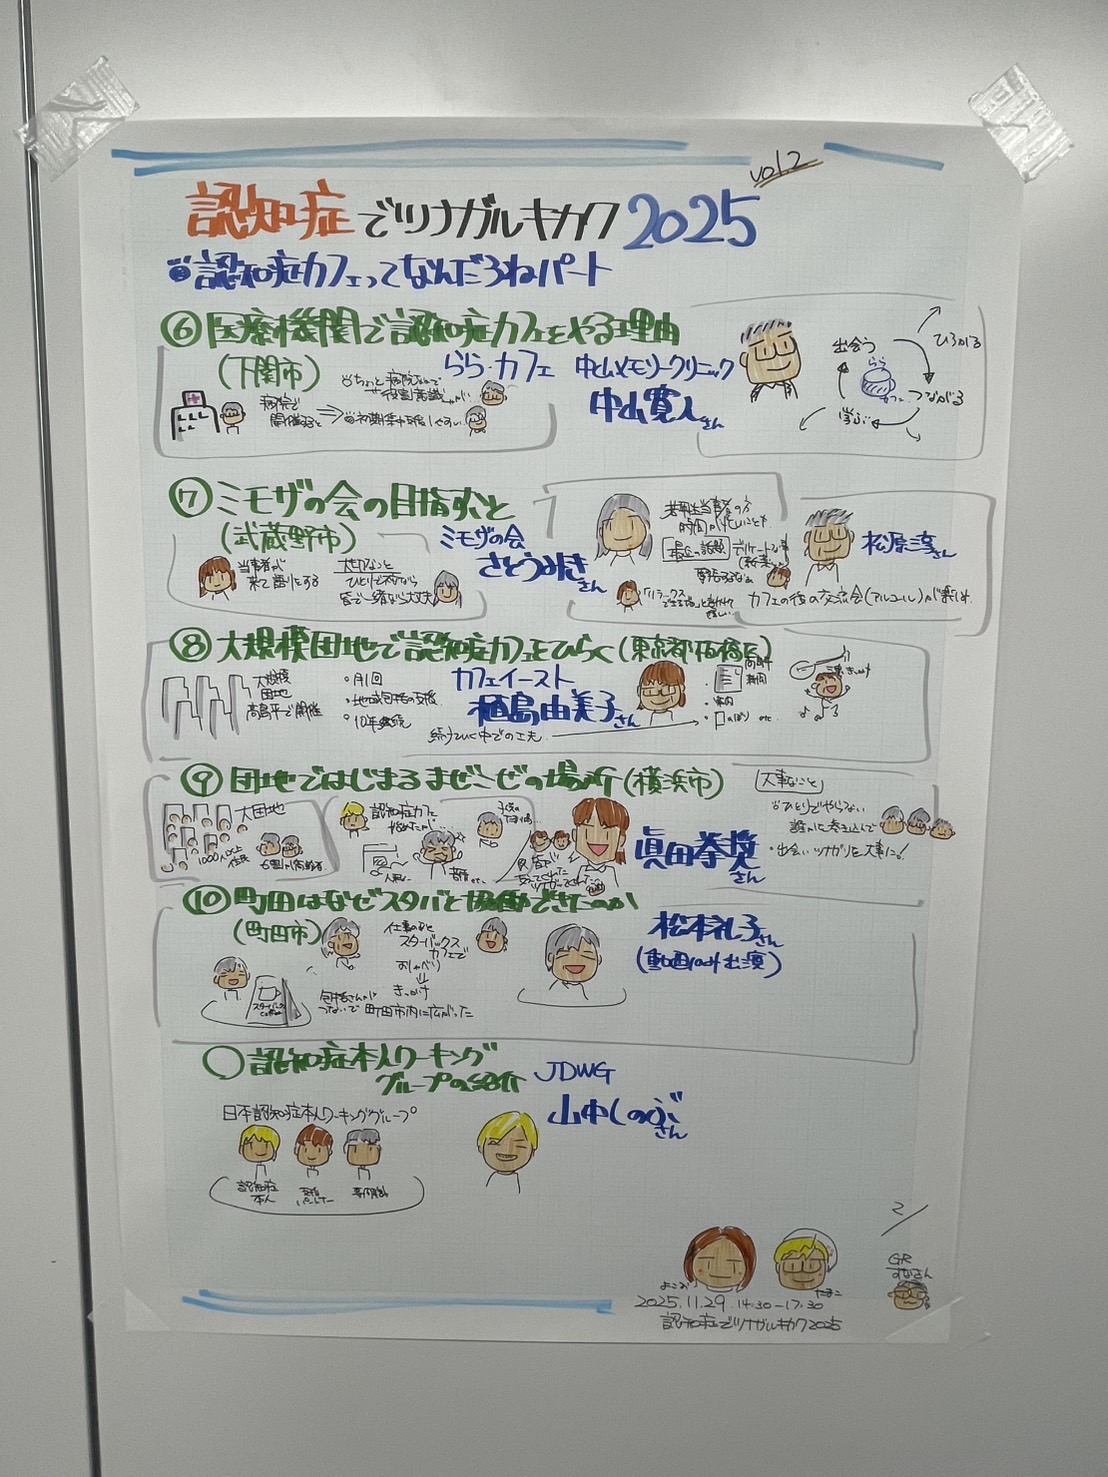 vol2
認知症でツナガルキカク2025
認知症カフェってなんだろねパート
⑥医療機関で認知症カフェをやる理由
(下関市)
らら・カフェ
中山メモリークリニック
中山寛人さん
病院で
開催すると
ちょっと病院なので
初期集中支援しやすい
出会う
ひろがる
つながる
学ぶ
らら
カフェ
⑦ミモザの会の目指すこと
(武蔵野市)
ミモザの会
さとうみきさん
当事者が
来て普りにする
大切なこと
ひとりで不安なら
皆で一緒なら大丈夫
若年性当事者の方
時間がほしいことも
最近の話題
デリケートな事
松原淳さん
カフェの後の交流会(アルコール)が楽しみ
⑧大規模団地で認知症カフェをひらく(東京都板橋区)
大規模
団地
高島平で開催
・月1回
・地域包括の支援
・10年継続
カフェイースト
植島由美子さん
続けていく中での工夫
新聞
・のぼり etc.
⑨団地ではじまるまぜこぜの場所(横浜市)
大団地
1000人以上
住民
6割が高齢者
認知症カフェ
始めたが
大事なこと
ひとりでやらない
誰かを巻き込んで
・出会い ツナガリを大事に!
眞田挙奨さん
⑩町田はなぜスタバと協働できたのか
(町田市)
仕事のあと
スターバックス
カフェで
おしゃべり
⇓
きっかけ
スターバックス
coffee
包括さんが
つないで 町田市内に広がった
松本礼子さん
(動画 出演)
○認知症本人ワーキング
グループの紹介
JDWG
山中しのぶさん
日本認知症本人ワーキンググループ
認知症
本人
支援
パートナー
専門職
2/
GR
すなさん
よこみ
たまこ
2025.11.29.14:30-17:30
認知症でツナガルキカク2025